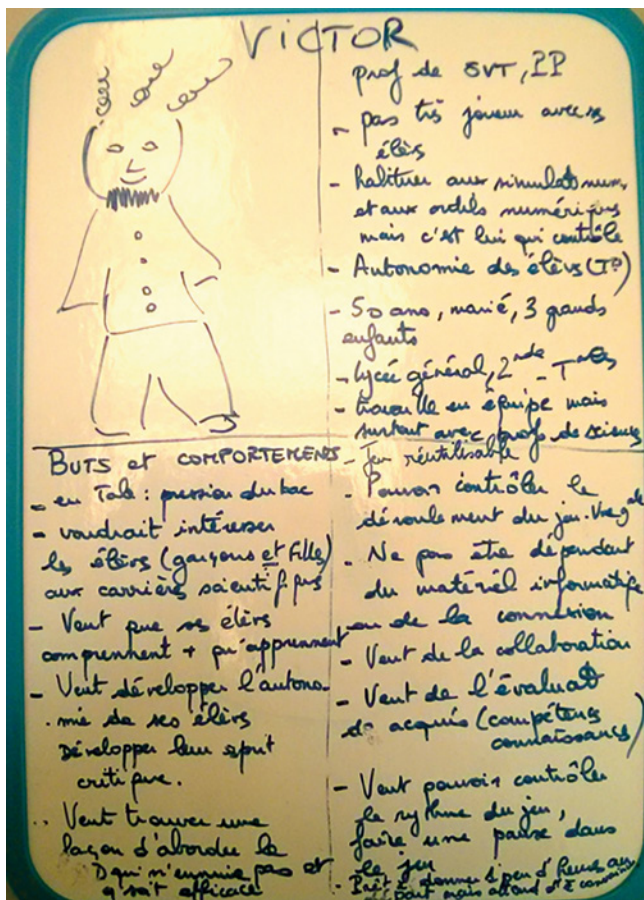 VICTOR
prof de SVT, PP
- pas très joueur avec ses
élèvs
- habituer aux simulat° num.
et aux outils numériques
mais c'est lui qui contrôle
- Autonomie des élèvs (TP)
- 50 ans, marié, 3 grands
enfants
- Lycée général, 2nde - Tales
- travaille en équipe mais
surtout avec profs de sciences
- Jeu réutilisable
- Pouvoir contrôler le
déroulement du jeu.
- Ne pas être dépendant
du matériel informatique
ou de la connexion
- Veut de la collaboration
- Veut de l'évaluat°
d'acquis (compétences
connaissances)
- Veut pouvoir contrôler
le rythme du jeu,
faire une pause dans
le jeu
- Prêt à donner 1 peu d'heures au
départ mais attend d'ê
BUTS et COMPORTEMENTS
- en Tale : pression du bac
- voudrait intéresser
les élèvs (garçons et filles)
aux carrières scientifiqus
- Veut que ses élèvs
comprennent + qu'apprennent
- Veut développer l'autono
mie de ses élèvs
Développer leur esprit
critique.
- Veut trouver une
façon d'aborder la
D qui n'ennuie pas et
q soit efficace